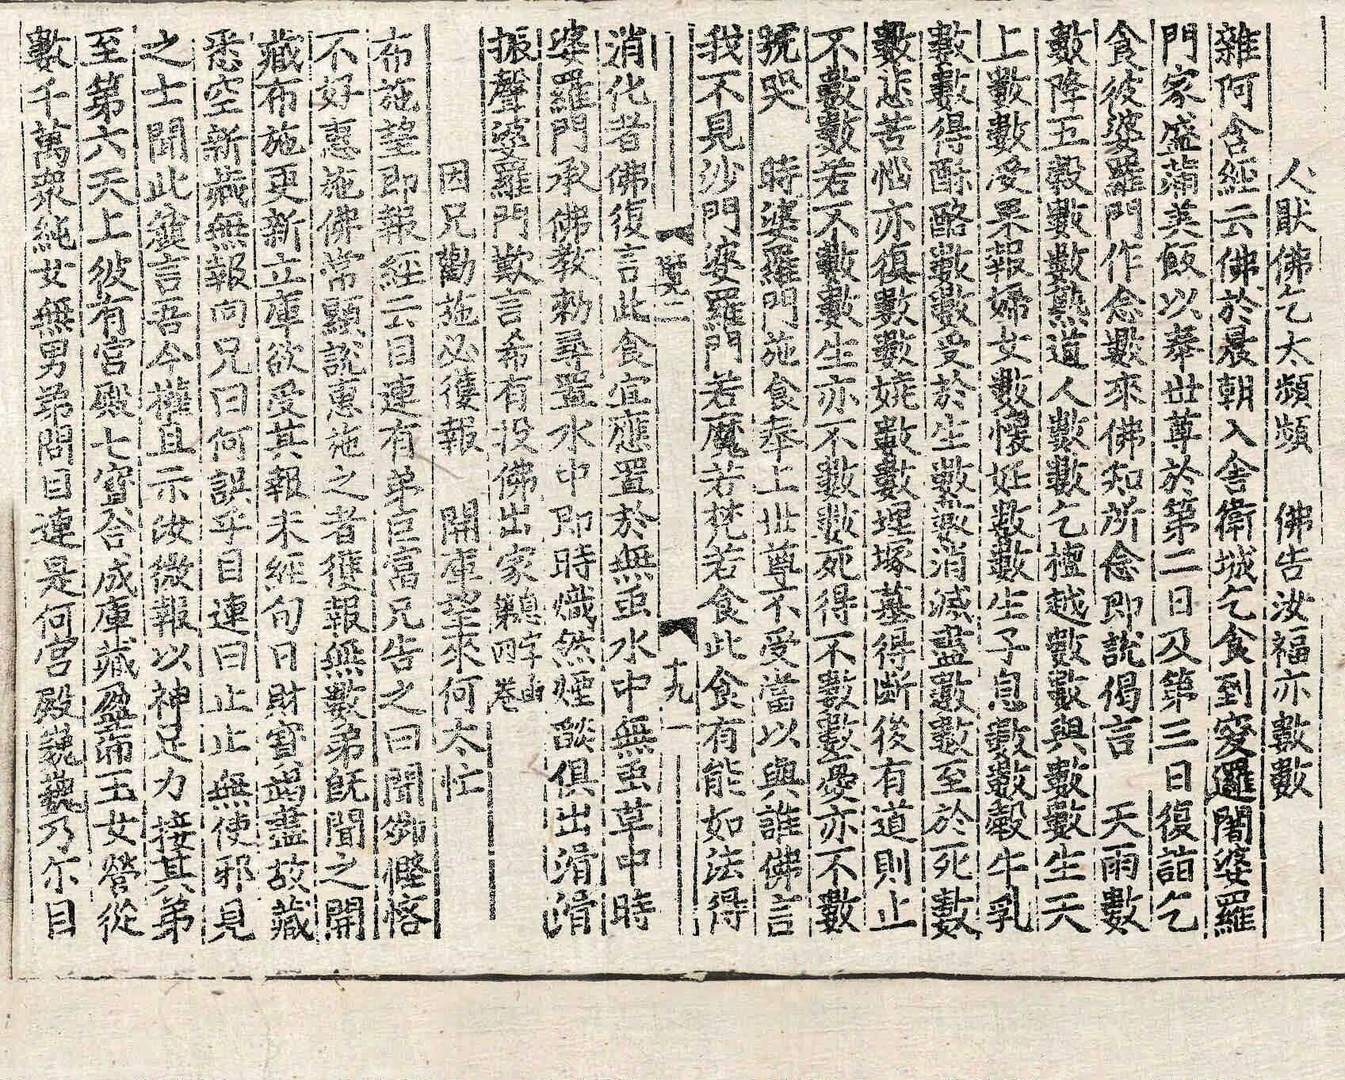 人猒佛乞太頻頻　佛告汝福亦數數
雜阿含經云佛於晨朝入舍衛城乞食到變邏闍婆羅
門家盛滿美飯以奉世尊於第二日及第三日復詣乞
食彼婆羅門作念數來佛知所念即說偈言　天雨數
數降五穀數數熟道人數數乞檀越數數與數數生天
上數數受果報婦女數懷妊數數生子息數數㲉牛乳
數數得酥酪數數受於生數數消滅盡數數至於死數
數悲苦惱亦復數數嬈數數埋塚墓得斷後有道則止
不數數若不數數生亦不數數死得不數數憂亦不數
號哭　時婆羅門施食奉上世尊不受當以與誰佛言
我不見沙門婆羅門若魔若梵若食此食有能如法得
十九　一
消化者佛復言此食宜應置於無虫水中無虫草中時
婆羅門承佛教勑尋置水中即時熾然煙燄俱出滑滑
振聲婆羅門歎言希有投佛出家第四卷
因兄勸施必獲報　開庫望來何太忙
布施望即報經云目連有弟巨富兄告之曰聞卿慳悋
不好惠施佛常顯說惠施之者獲報無數弟既聞之開
藏布施更新立庫欲受其報未經旬日財寶竭盡故藏
悉空新藏無報向兄曰何誤乎目連曰止止無使邪見
之士聞此麄言吾今權且示汝微報以神足力接其弟
至第六天上彼有宮殿七寶合成庫藏盈滿玉女營從
數千萬眾純女無男弟問目連是何宮殿巍巍乃尔目